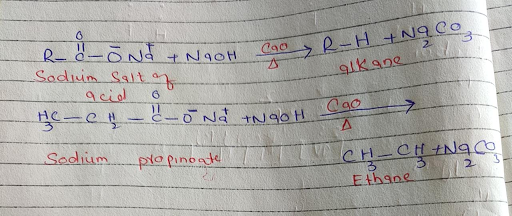 O
R-C-ŌNa⁺ + NaOH CaO → R-H + Na₂CO₃
Δ
Sodium Salt of alkane
acid O
H₃C-CH₂-C-ŌNa⁺ + NaOH CaO →
Δ
Sodium propinoate CH₃-CH₃ + Na₂CO₃
Ethane